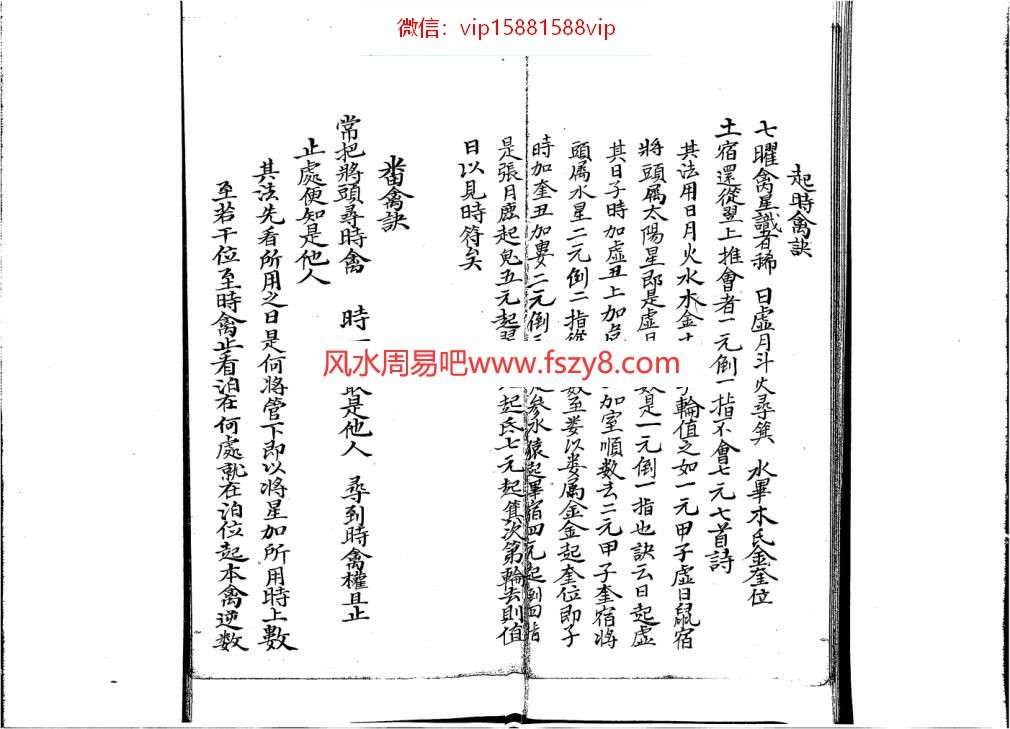 微信：vip15881588vip
起時禽訣
七曜禽星識者稀　日虛月斗火尋箕　水畢木氐金奎位
土宿還從翌上推會者一元倒一指不會七元七首詩
其法用日月火水木金土輪值之如一元甲子虛日鼠宿
將頭屬太陽星即是虛日是一元倒一指也訣云日起虛
其日子時加虛丑上加危加室順數去二元甲子奎宿將
頭屬水星二元倒二指從數至婁以婁屬金金起奎位即子
時加奎丑加婁二元倒三是參水猿起畢宿四元起到四指
是張月鹿起鬼五元起翌起氐七元起箕次第輪去則值
日以見時符矣
番禽訣
常把將頭尋時禽　時是他人　尋到時禽權且止
止處便知是他人
其法先看所用之日是何將管下即以將星加所用時上數
至若干位至時禽止看泊在何處就在泊位起本禽逆數
风水周易吧www.fszy8.com